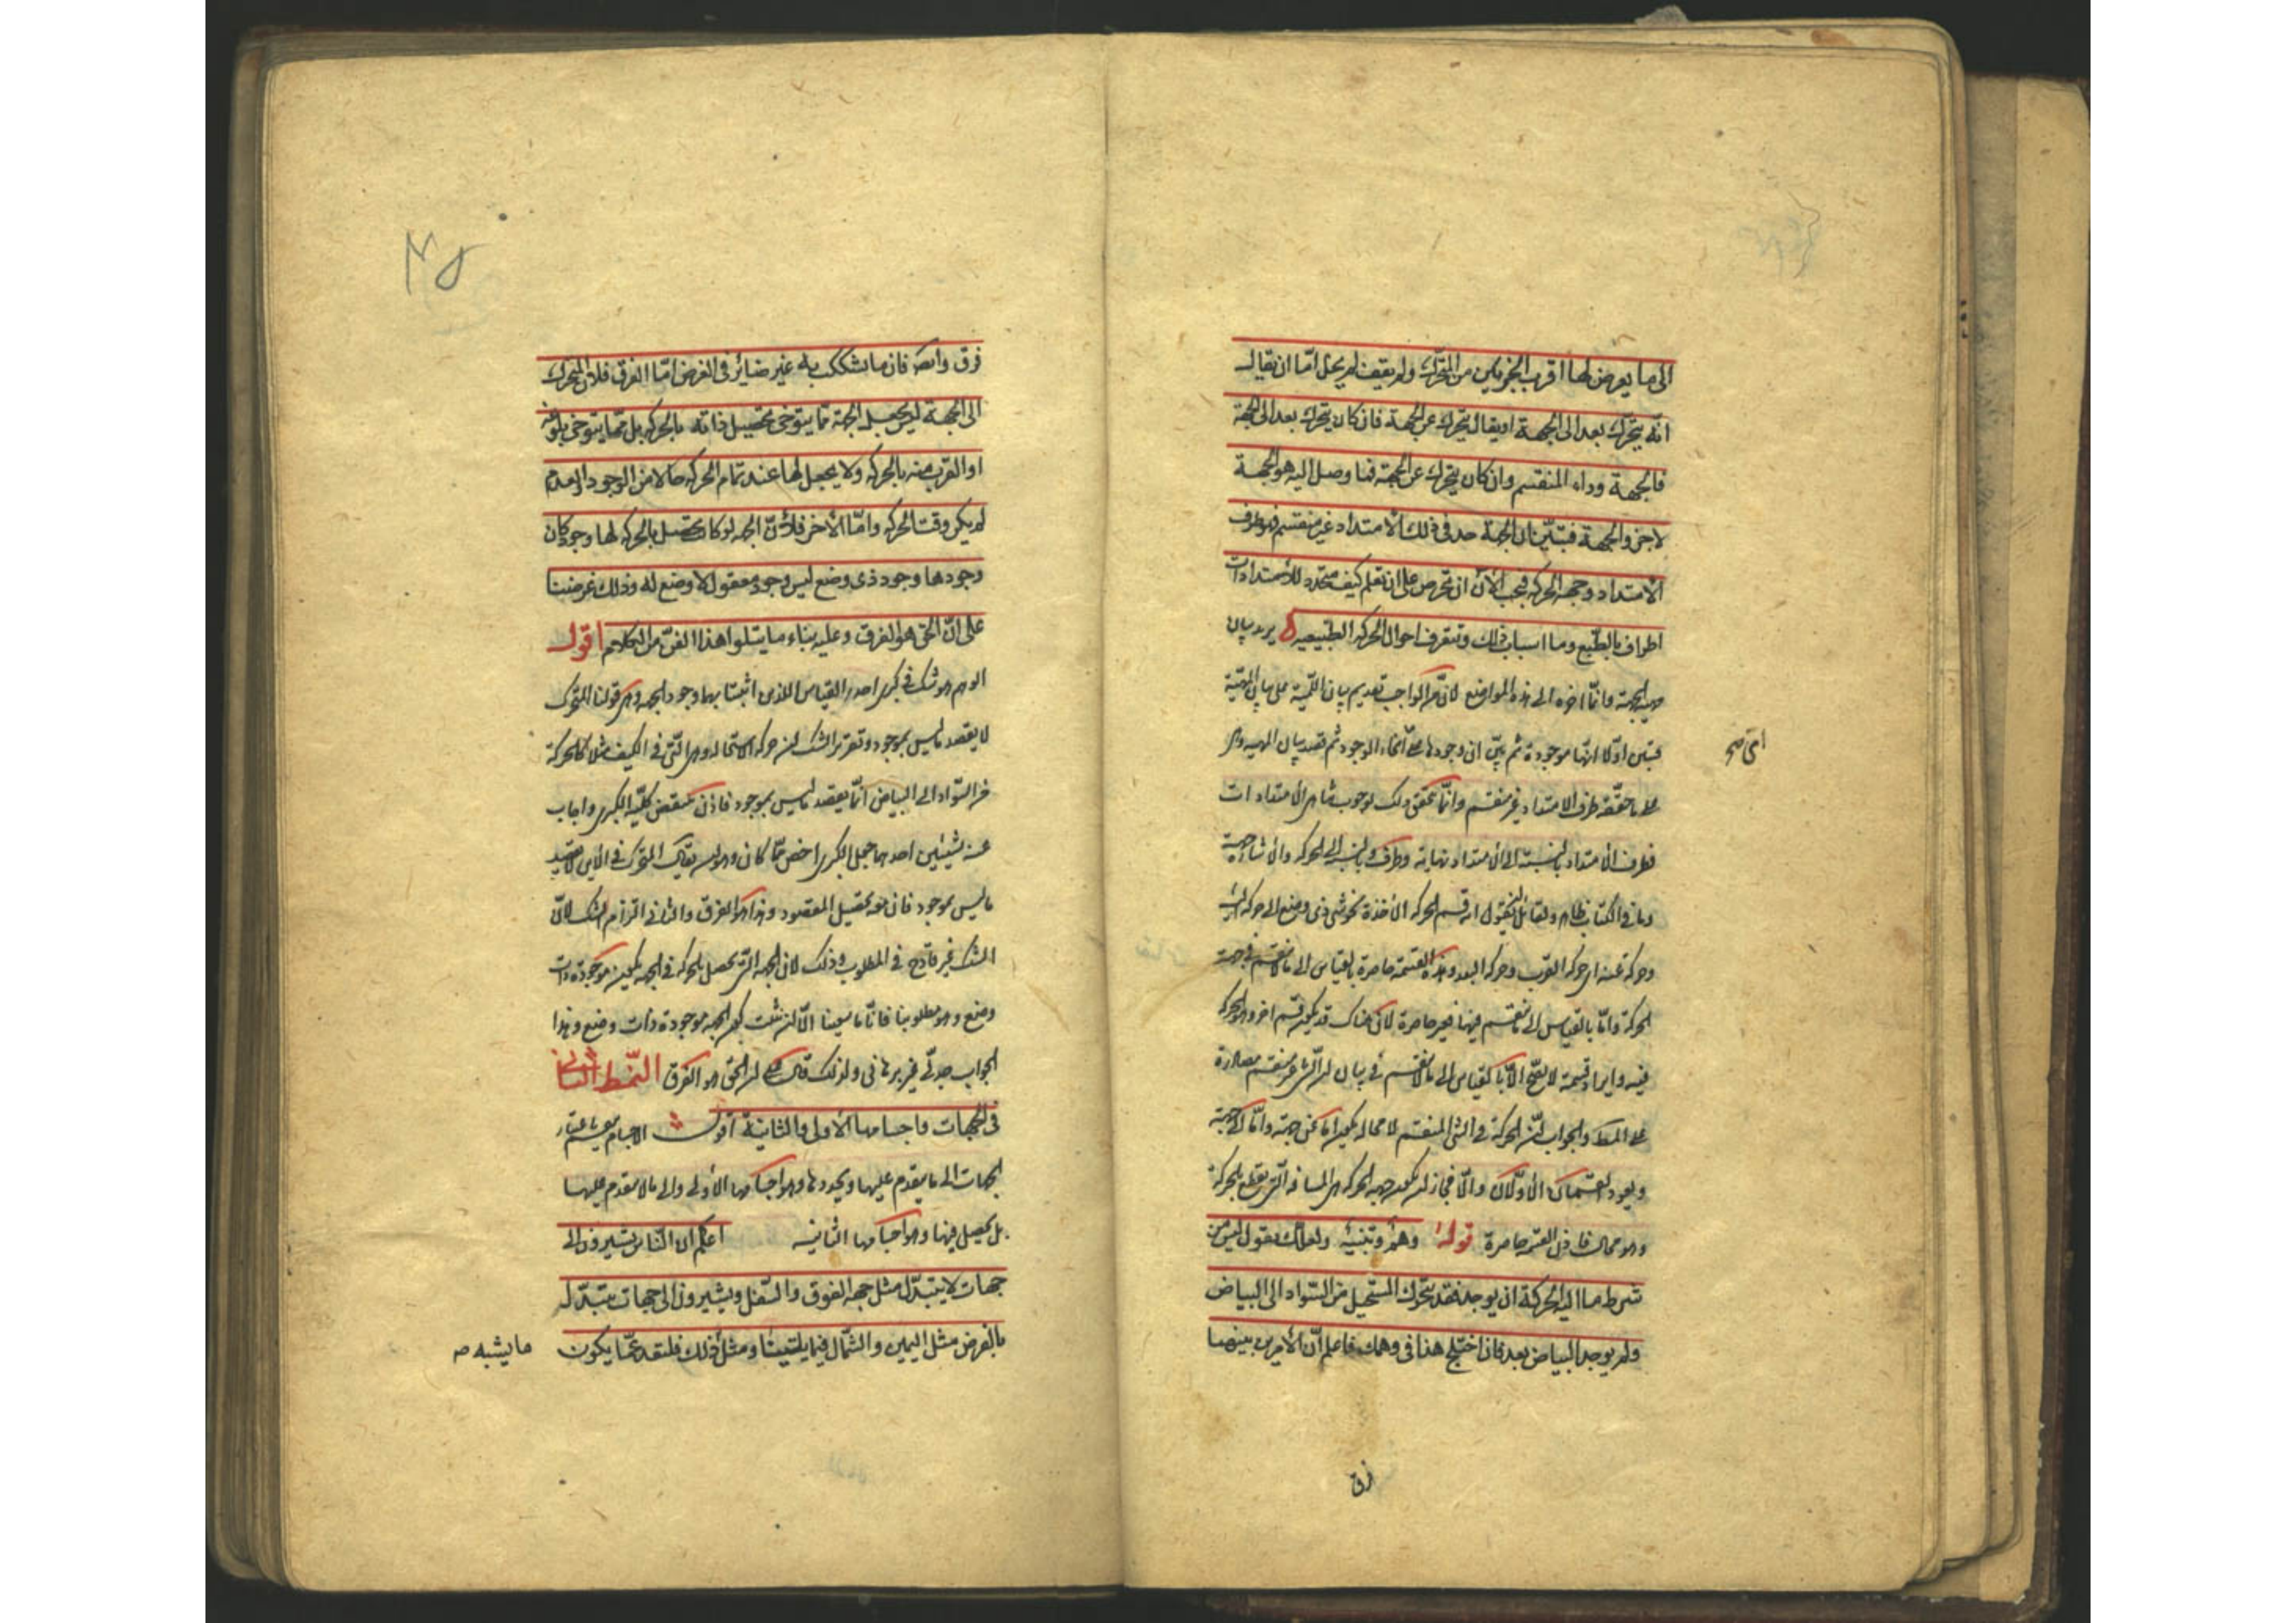 الى ما يعرض لها اقرب الجزئين من المتحرك ولم يقف لم يخل اما ان يقال
انه يتحرك بعد الى الجهة او يقال يتحرك عن الجهة فان كان يتحرك بعد الى الجهة
فالجهة وراء المنقسم وان كان يتحرك عن الجهة فما وصل اليه هو الجهة
لا جزء الجهة فتبين ان الجهة حد في ذلك الامتداد غير منقسم فهو طرف
الامتداد وجهة الحركة فيجب الآن ان تحرص على ان تعلم كيف يتحدد للامتدادات
اطراف بالطبع وما اسباب ذلك وتتعرف احوال الحركة الطبيعية يريد بيان
مهية الجهة وانما اخره الى هذه المواضع لان الواجب تقديم بيان اللمية على بيان
فبين اولا انها موجودة ثم بين ان وجودها على اى انحاء الوجود ثم قصد بيان المهية وهى
على ما حققه طرف الامتداد غير منقسم وانما تحقق ذلك لوجوب تناهى الامتدادات
فطرف الامتداد بالنسبة الى الامتداد نهاية وطرف وبالنسبة الى الحركة والاشارة جهة
وما فى الكتاب ظاهر ولقائل ان يقول انه قسم الحركة الآخذة نحو شئ ذى وضع الى حركة اليه
وحركة عنه اى حركة القرب وحركة البعد وهذه القسمة حاصرة بالقياس الى ما لا ينقسم فى جهة
الحركة واما بالقياس الى ما ينقسم فيها فغير حاصرة لان هناك قد يكون قسم آخر وهو الحركة
فيه وايراد قسمة لا تصح الا بالقياس الى ما لا ينقسم فى بيان ان الشئ غير منقسم مصادرة
على المط والجواب ان الحركة فى الشئ المنقسم لا محالة يكون اما عن جهة واما الى جهة
ويعود القسمان الاولان والا فجاز ان يكون جهة الحركة هى المسافة التى يقطع بالحركة
وهو محال فاذن القسمة حاصرة قوله وهم وتنبيه ولعلك تقول ليس من
شرط ما اليه الحركة ان يوجد فقد يتحرك المستحيل من السواد الى البياض
ولم يوجد البياض بعد فان اختلج هذا فى وهمك فاعلم ان الامرين بينهما
فرق
فرق وايضا فان ما تشكك به غير ضائر فى الغرض اما الفرق فلان المتحرك
الى الجهة ليس يجعل الجهة مما يتوخى تحصيل ذاته بالحركة بل مما يتوخى بلوغه
او القرب منه بالحركة ولا يجعل لها عند تمام الحركة حالا من الوجود والعدم
لم يكن وقت الحركة واما الآخر فلان الجهة لو كانت تحصل بالحركة لها وجود كان
وجودها وجود ذى وضع ليس وجود معقول لا وضع له وذلك غرضنا
على ان الحق هو الفرق وعليه بناء ما يتلو هذا الفن من الكلام اقول
الوهم هو شك فى كبرى احد القياس الذى اثبتنا بهما وجود الجهة وهى قولنا المتحرك
لا يقصد ما ليس بموجود وتقرير الشك ان حركة الاستحالة وهى التى فى الكيف مثلا كالحركة
من السواد الى البياض انما يقصد ما ليس بموجود فاذن ينتقض كلية الكبرى واجاب
عنه بشيئين احدهما جعل الكبرى اخص مما كان وهو ان يقال المتحرك فى الاين لا يقصد
ما ليس بموجود فان به يحصل المقصود وهذا هو الفرق والثانى التزام الشك لان
الشك غير قادح فى المطلوب وذلك لان الجهة التى تحصل بالحركة فى الجهة يكون موجودة ذات
وضع وهو مطلوبنا فانا ما سعينا الا لنثبت كون الجهة موجودة ذات وضع وهذا
الجواب جدلى غير برهانى ولذلك قال ان الحق هو الفرق النمط الثانى
فى الجهات واجسامها الاولى والثانية اقول الاجسام باعتبار
الجهات الى ما يتقدم عليها ويحددها وهو اجسامها الاولى والى ما لا يتقدم عليها
بل يحصل فيها وهو اجسامها الثانية اعلم ان الناس يشيرون الى
جهات لا يتبدل مثل جهة الفوق والسفل ويشيرون الى جهات يتبدل
بالفرض مثل اليمين والشمال فيما يلينا ومثل ذلك فلنعد عما يكون
ما يشبه